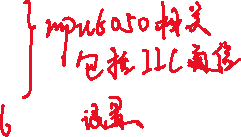 mpu6050相关
包括IIC通信
6 设置